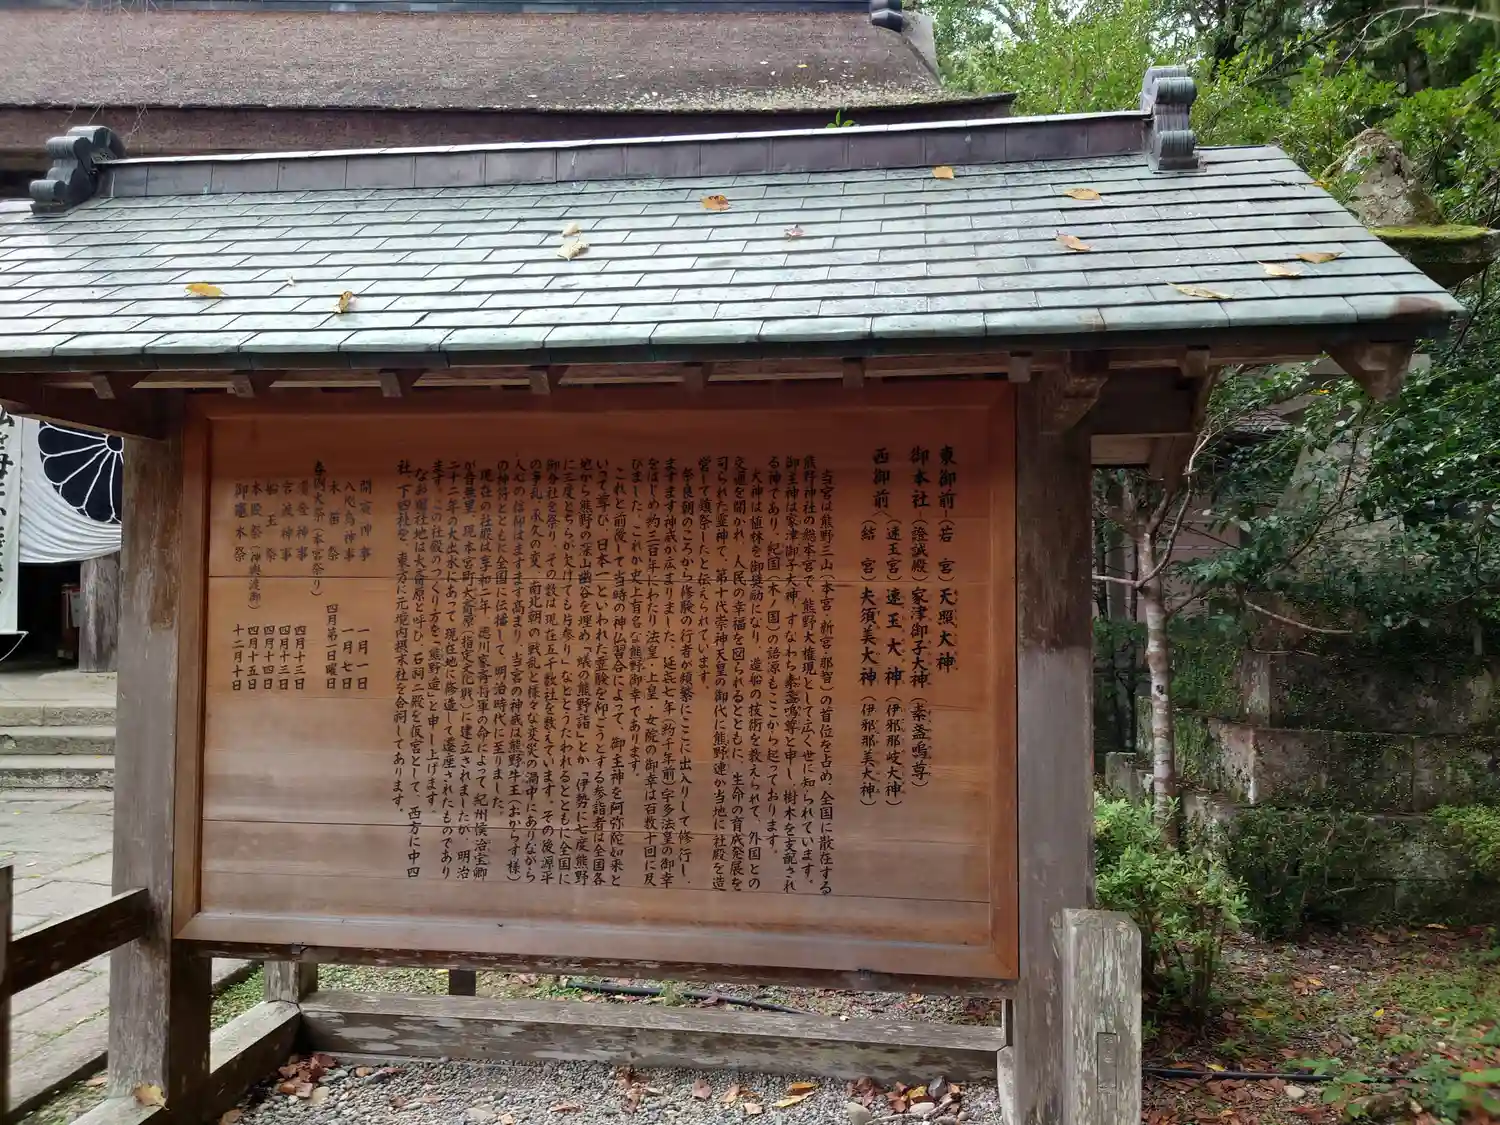 東御前(若宮)天照大神
御本社(證誠殿)家津御子大神(素盞嗚尊)
(速玉宮)速玉大神(伊邪那岐大神)
西御前
(結宮)夫須美大神(伊邪那美大神)
当宮は熊野三山(本宮・新宮・那智)の首位を占め、全国に散在する
熊野神社の総本宮で、熊野大権現として広く世に知られています。
御主神は家津御子大神、すなわち素盞嗚尊と申し、樹木を支配され
る神であり、紀国(木ノ国)の語源もここから起っております。
大神は植林を御奨励になり、造船の技術を教えられて、外国との
交通を開かれ、人民の幸福を図られるとともに、生命の育成発展を
司られた霊神で、第十代崇神天皇の御代に熊野連が当地に社殿を造
営して鎮祭したと伝えられています。
奈良朝のころから修験の行者が頻繁にここに出入りして修行し、
ますます神威が広まりました。延喜七年(約千年前)宇多法皇の御幸
をはじめ、約三百年にわたり法皇・上皇・女院の御幸は百数十回に及
びました。これが史上有名な熊野御幸であります。
これと前後して当時の神仏習合によって、御主神を阿弥陀如来と
いって尊び、日本一といわれた霊験を仰ごうとする参詣者は全国各
地から熊野の深山幽谷を埋め「蟻の熊野詣」とか「伊勢に七度熊野
に三度どちらが欠けても片参り」などとうたわれるとともに全国に
御分社を祭り、その数は現在五千数社を数えています。その後源平
の争乱・承久の変、南北朝の戦乱と様々な変災の渦中にありながら
人々の信仰はますます高まり、当宮の神威は熊野牛王(おからす様)
の神符とともに全国に伝播して、明治時代に至りました。
現在の社殿は享和二年、徳川家斉将軍の命によって紀州侯治宝卿
が音無里、現本宮町大斎原(指定文化財)に建立されましたが、明治
二十二年の大出水にあって現在地に修造して遷座されたものであり
ます。この社殿のつくり方を(熊野造)と申し上げます。
なお旧社地は大斎原と呼び、石祠二殿を仮宮として、西方に中四
社、下四社を、東方に元境内摂末社を合祠してあります。
開寅神事 一月一日
八咫烏神事 一月七日
木苗祭 四月第一日曜日
春例大祭(本宮祭り)
湯登神事 四月十三日
宮渡神事 四月十三日
船玉祭 四月十四日
本殿祭(神輿渡御) 四月十五日
御竈木祭 十二月十日